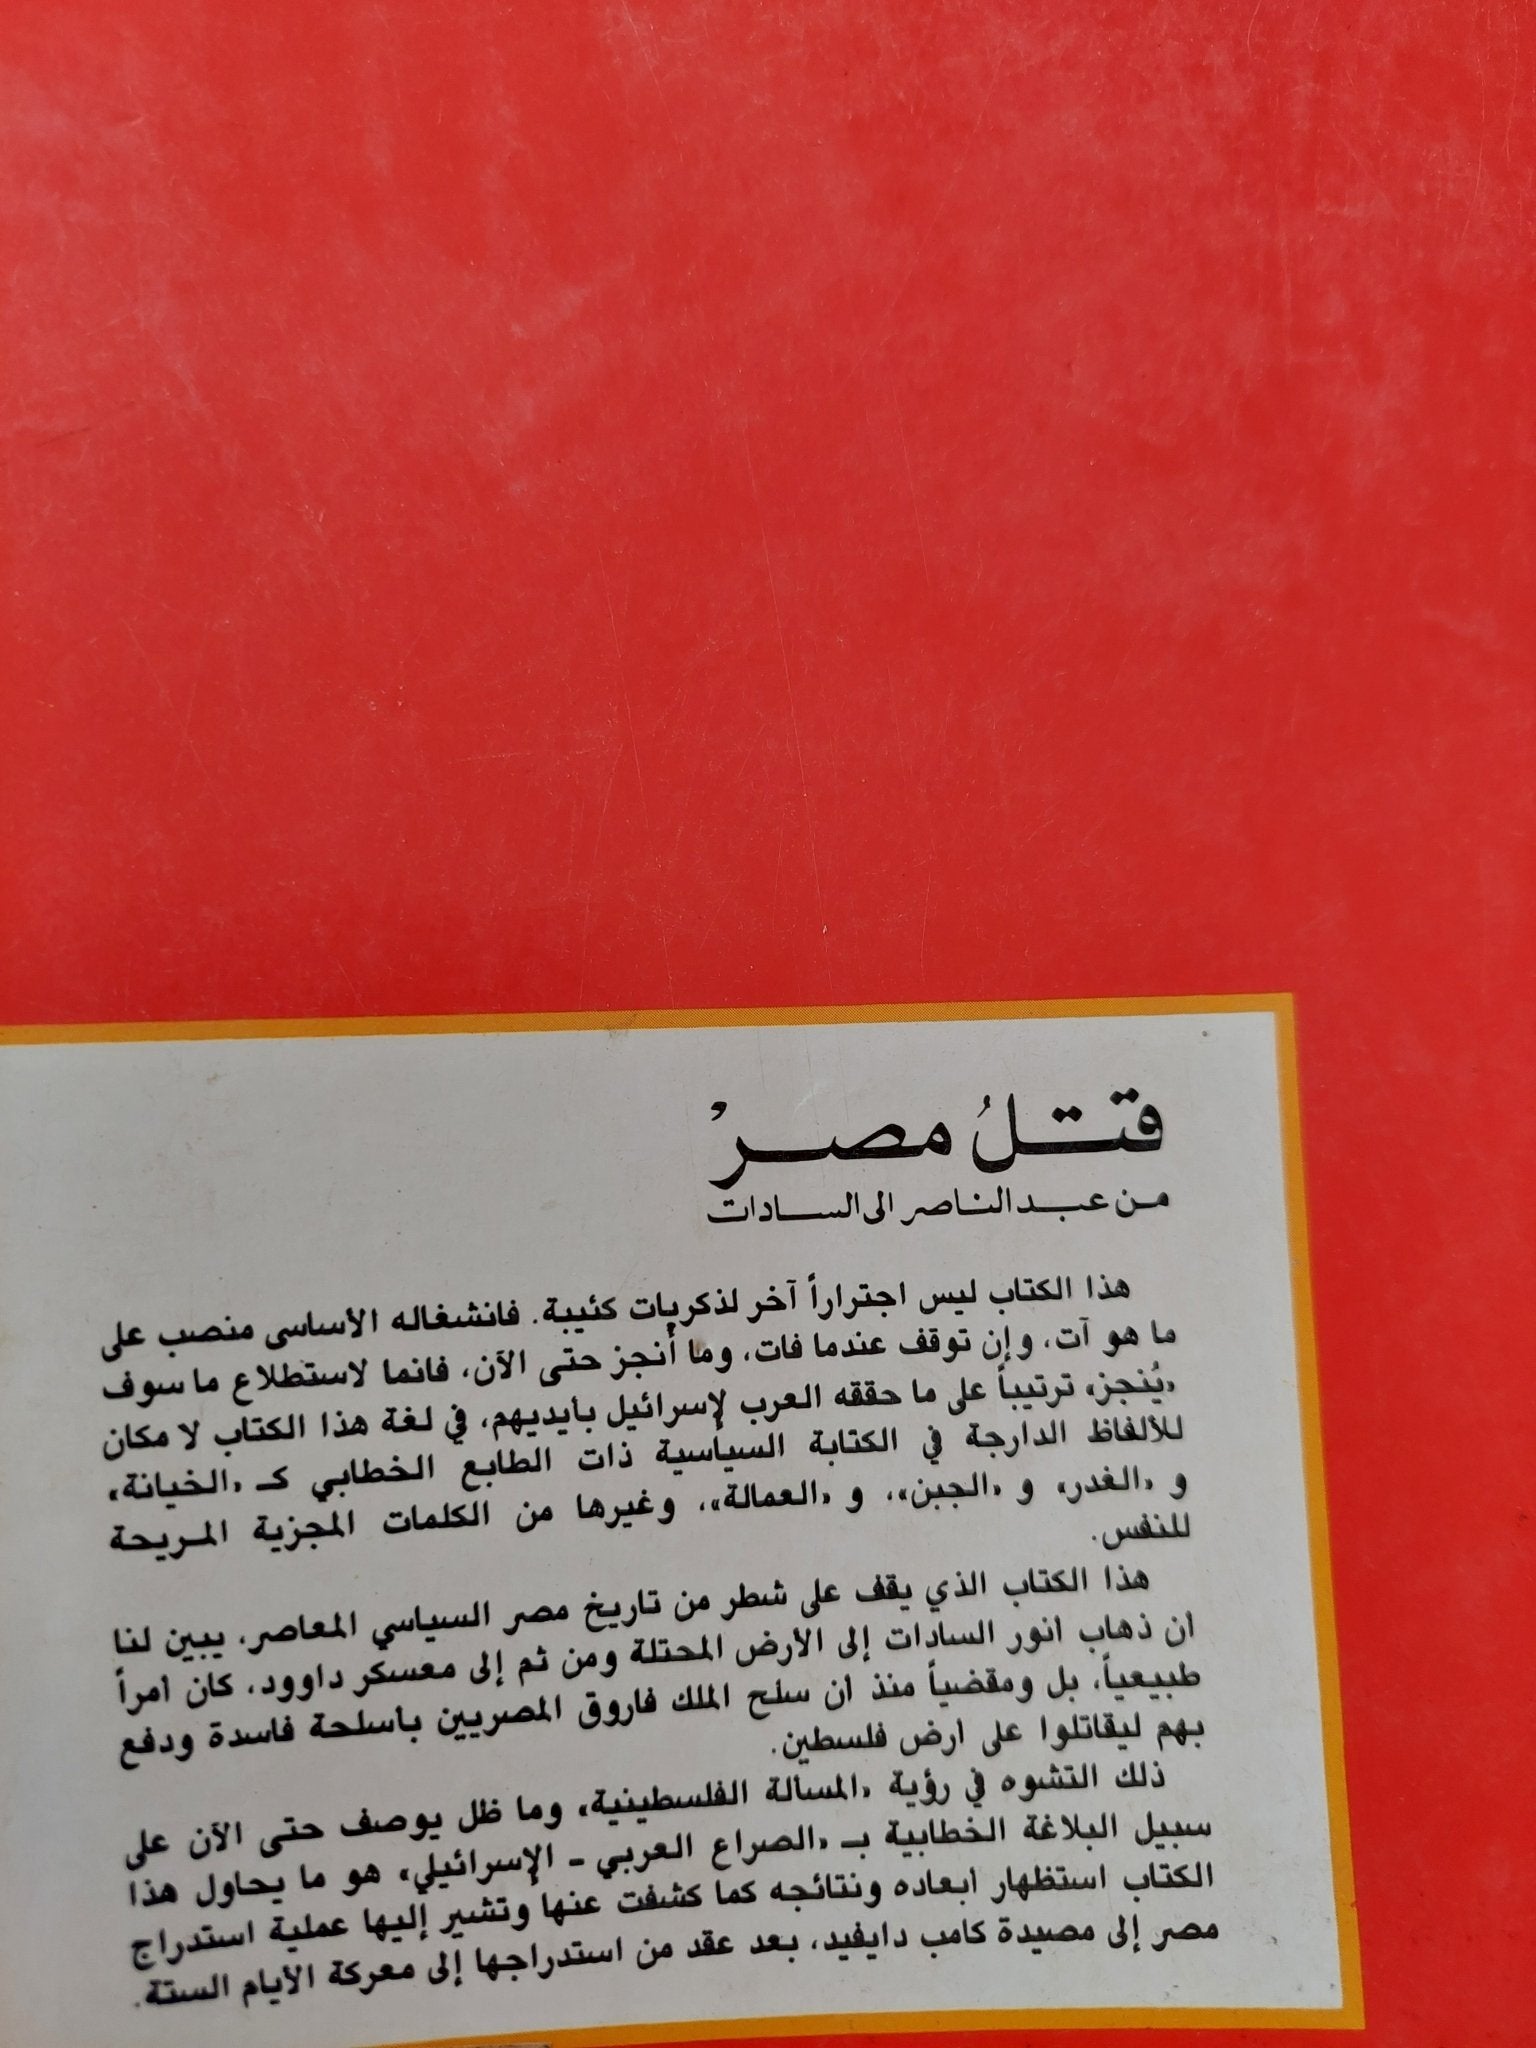 قتلُ مصرْ
من عبد الناصر الى السادات
هذا الكتاب ليس اجتراراً آخر لذكريات كئيبة. فانشغاله الأساسي منصب على
ما هو آت، وإن توقف عندما فات، وما أُنجز حتى الآن، فانما لاستطلاع ما سوف
«يُنجز» ترتيباً على ما حققه العرب لإسرائيل بأيديهم، في لغة هذا الكتاب لا مكان
للألفاظ الدارجة في الكتابة السياسية ذات الطابع الخطابي كـ «الخيانة»
و «الغدر» و «الجبن»، و «العمالة»، وغيرها من الكلمات المجزية المريحة
للنفس.
هذا الكتاب الذي يقف على شطر من تاريخ مصر السياسي المعاصر، يبين لنا
ان ذهاب انور السادات إلى الأرض المحتلة ومن ثم إلى معسكر داوود، كان أمراً
طبيعياً، بل ومقضياً منذ ان سلح الملك فاروق المصريين بأسلحة فاسدة ودفع
بهم ليقاتلوا على ارض فلسطين.
ذلك التشوه في رؤية «المسألة الفلسطينية» وما ظل يوصف حتى الآن على
سبيل البلاغة الخطابية بـ «الصراع العربي - الإسرائيلي» هو ما يحاول هذا
الكتاب استظهار ابعاده ونتائجه كما كشفت عنها وتشير إليها عملية استدراج
مصر إلى مصيدة كامب دايفيد، بعد عقد من استدراجها إلى معركة الأيام الستة.